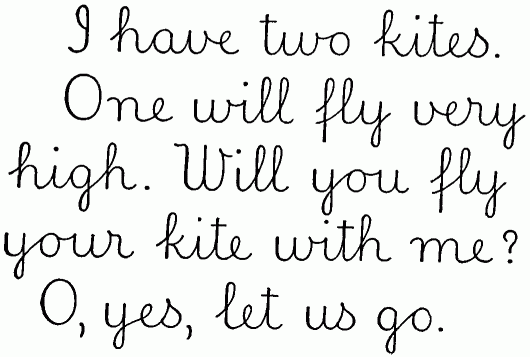 I have two kites.
One will fly very
high. Will you fly
your kite with me?
O, yes, let us go.